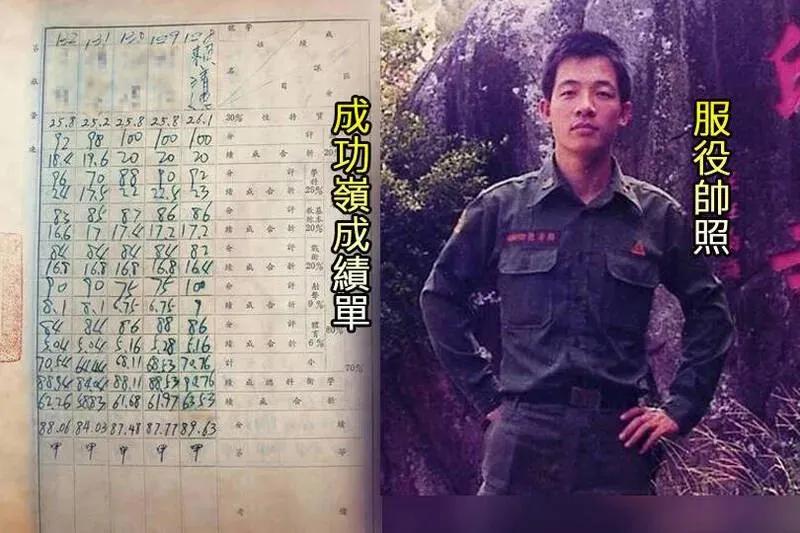 成功嶺成績單
服役帥照
132 131 130 129 128 號學
賴清德
25.8 25.2 25.8 25.8 26.1 30%
92 98 100 100 100 分評
18.4 19.6 20 20 20 績成合折 20%
96 70 88 90 92 分評 學科
24 17.5 22 22.5 23 績成合折 25%
83 85 87 86 86 分評 基本教練
16.6 17 17.4 17.2 17.2 績成合折 20%
84 84 84 84 82 分評 戰術
16.8 16.8 16.8 16.8 16.4 績成合折 20%
90 90 75 75 100 分評 射擊
8.1 8.1 6.75 6.75 9 績成合折 9%
84 84 86 88 86 分評 體育
5.04 5.04 5.16 5.28 5.16 績成合折 6%
70.54 68.11 68.53 70.76 計小 70%
88.94 84.04 88.11 88.53 90.76 績成總科術學
62.26 58.83 61.68 61.97 63.53 績成合折
88.06 84.03 87.48 87.77 89.63 分績
甲 甲 甲 甲 甲 第等
考備